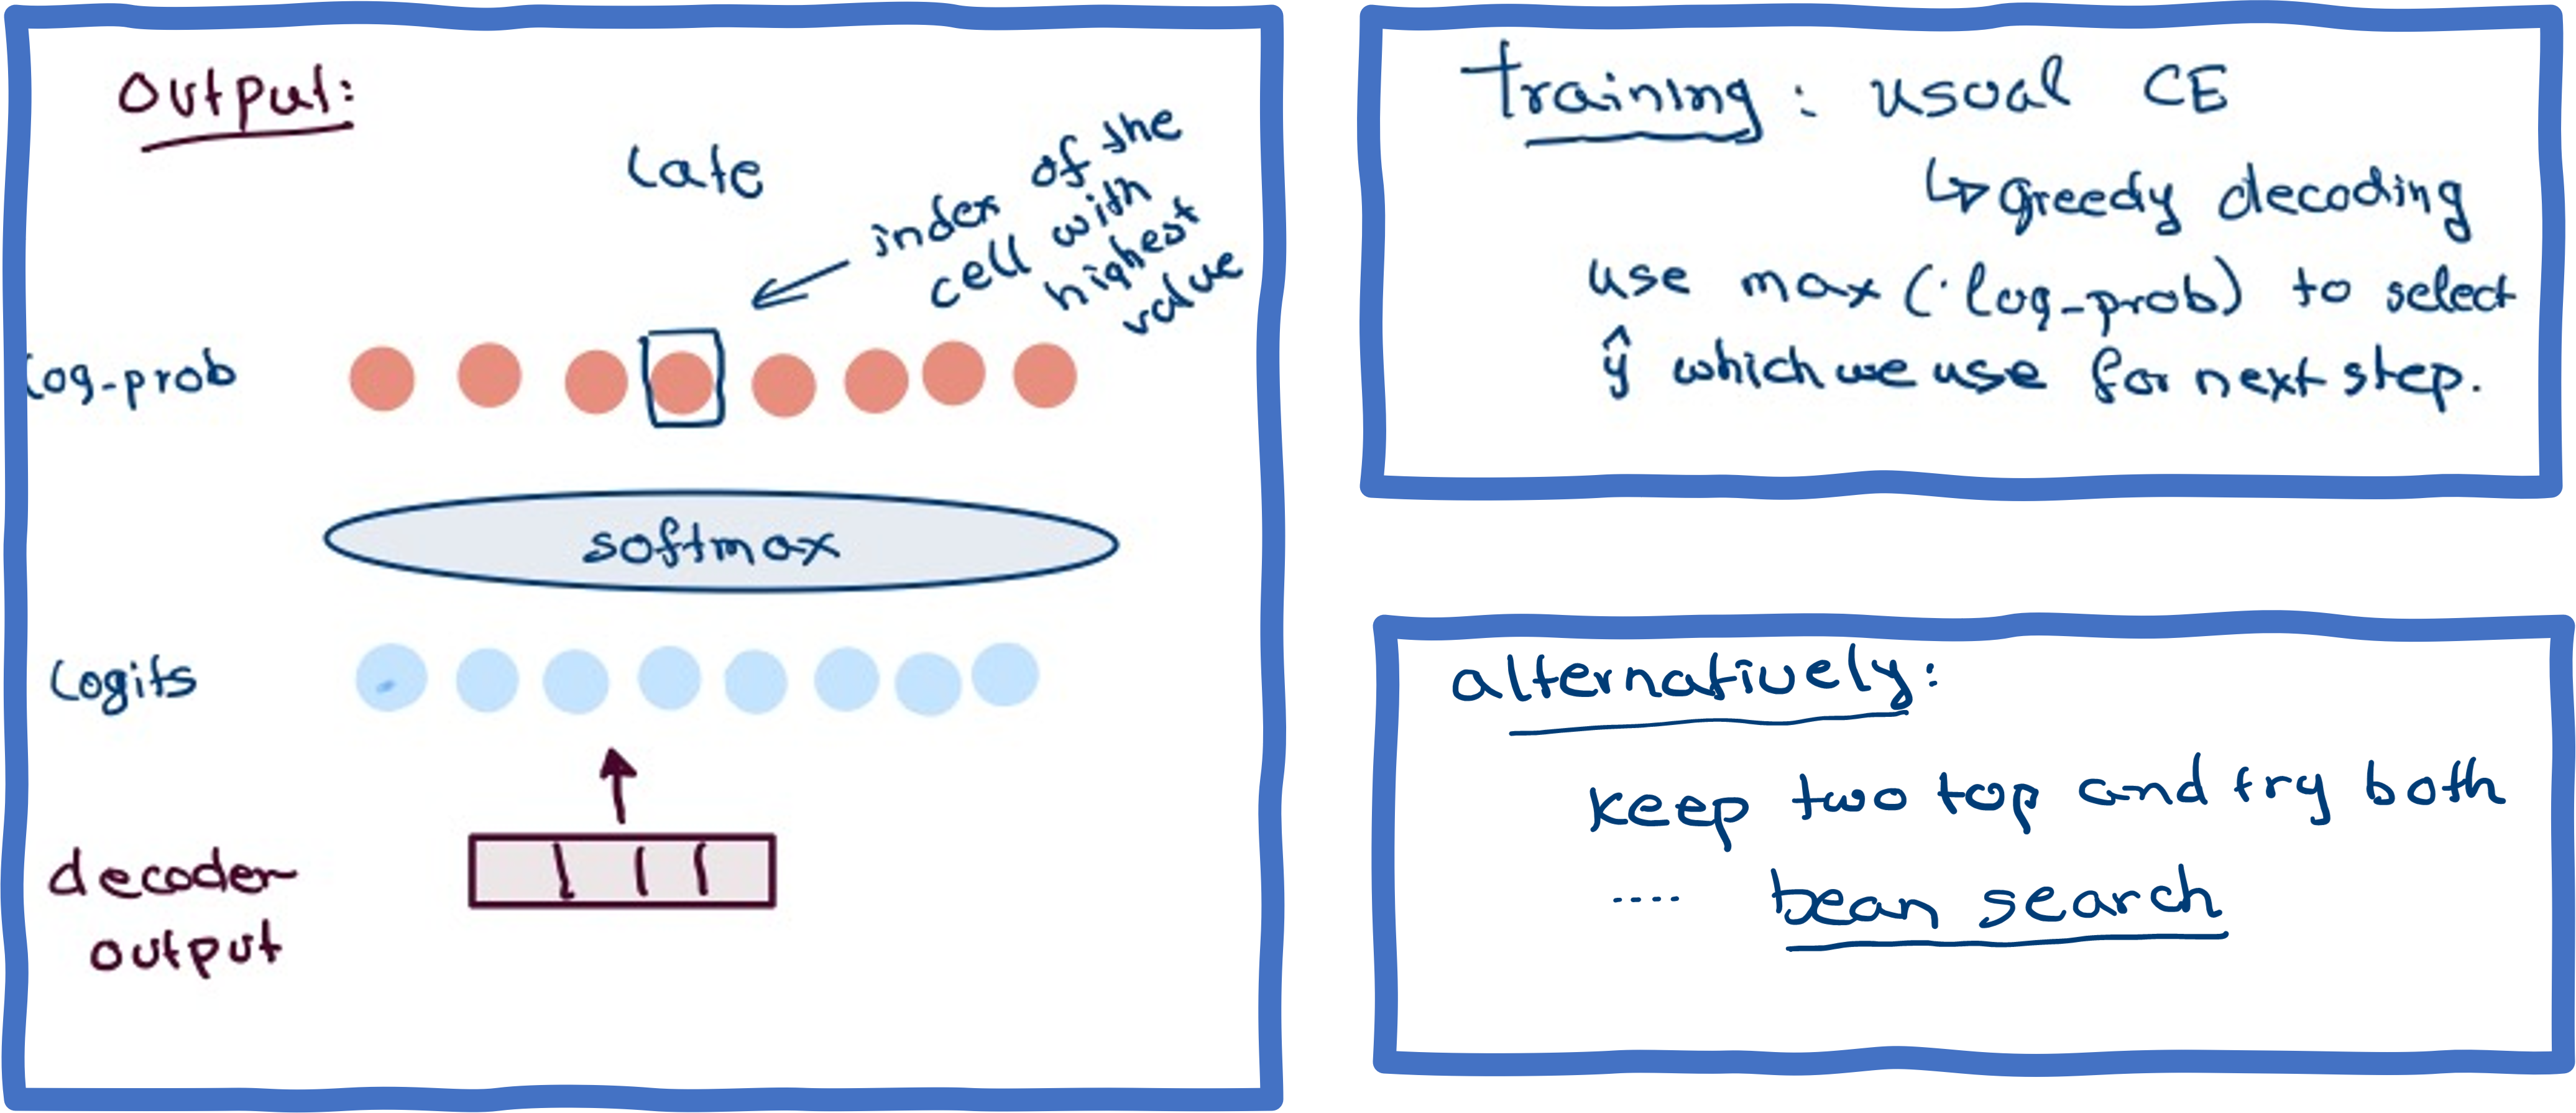 Output:
Late
index of the
cell with
highest
value
log-prob
softmax
Logits
decoder
output
training: usual CE
↳ greedy decoding
use max (·log-prob) to select
ŷ which we use for next step.
alternatively:
keep two top and try both
.... bean search